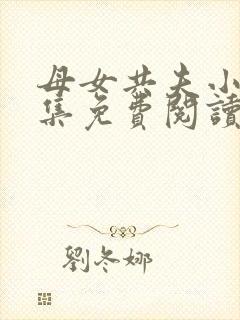 母女共夫小
集免費閱讀
劉冬娜